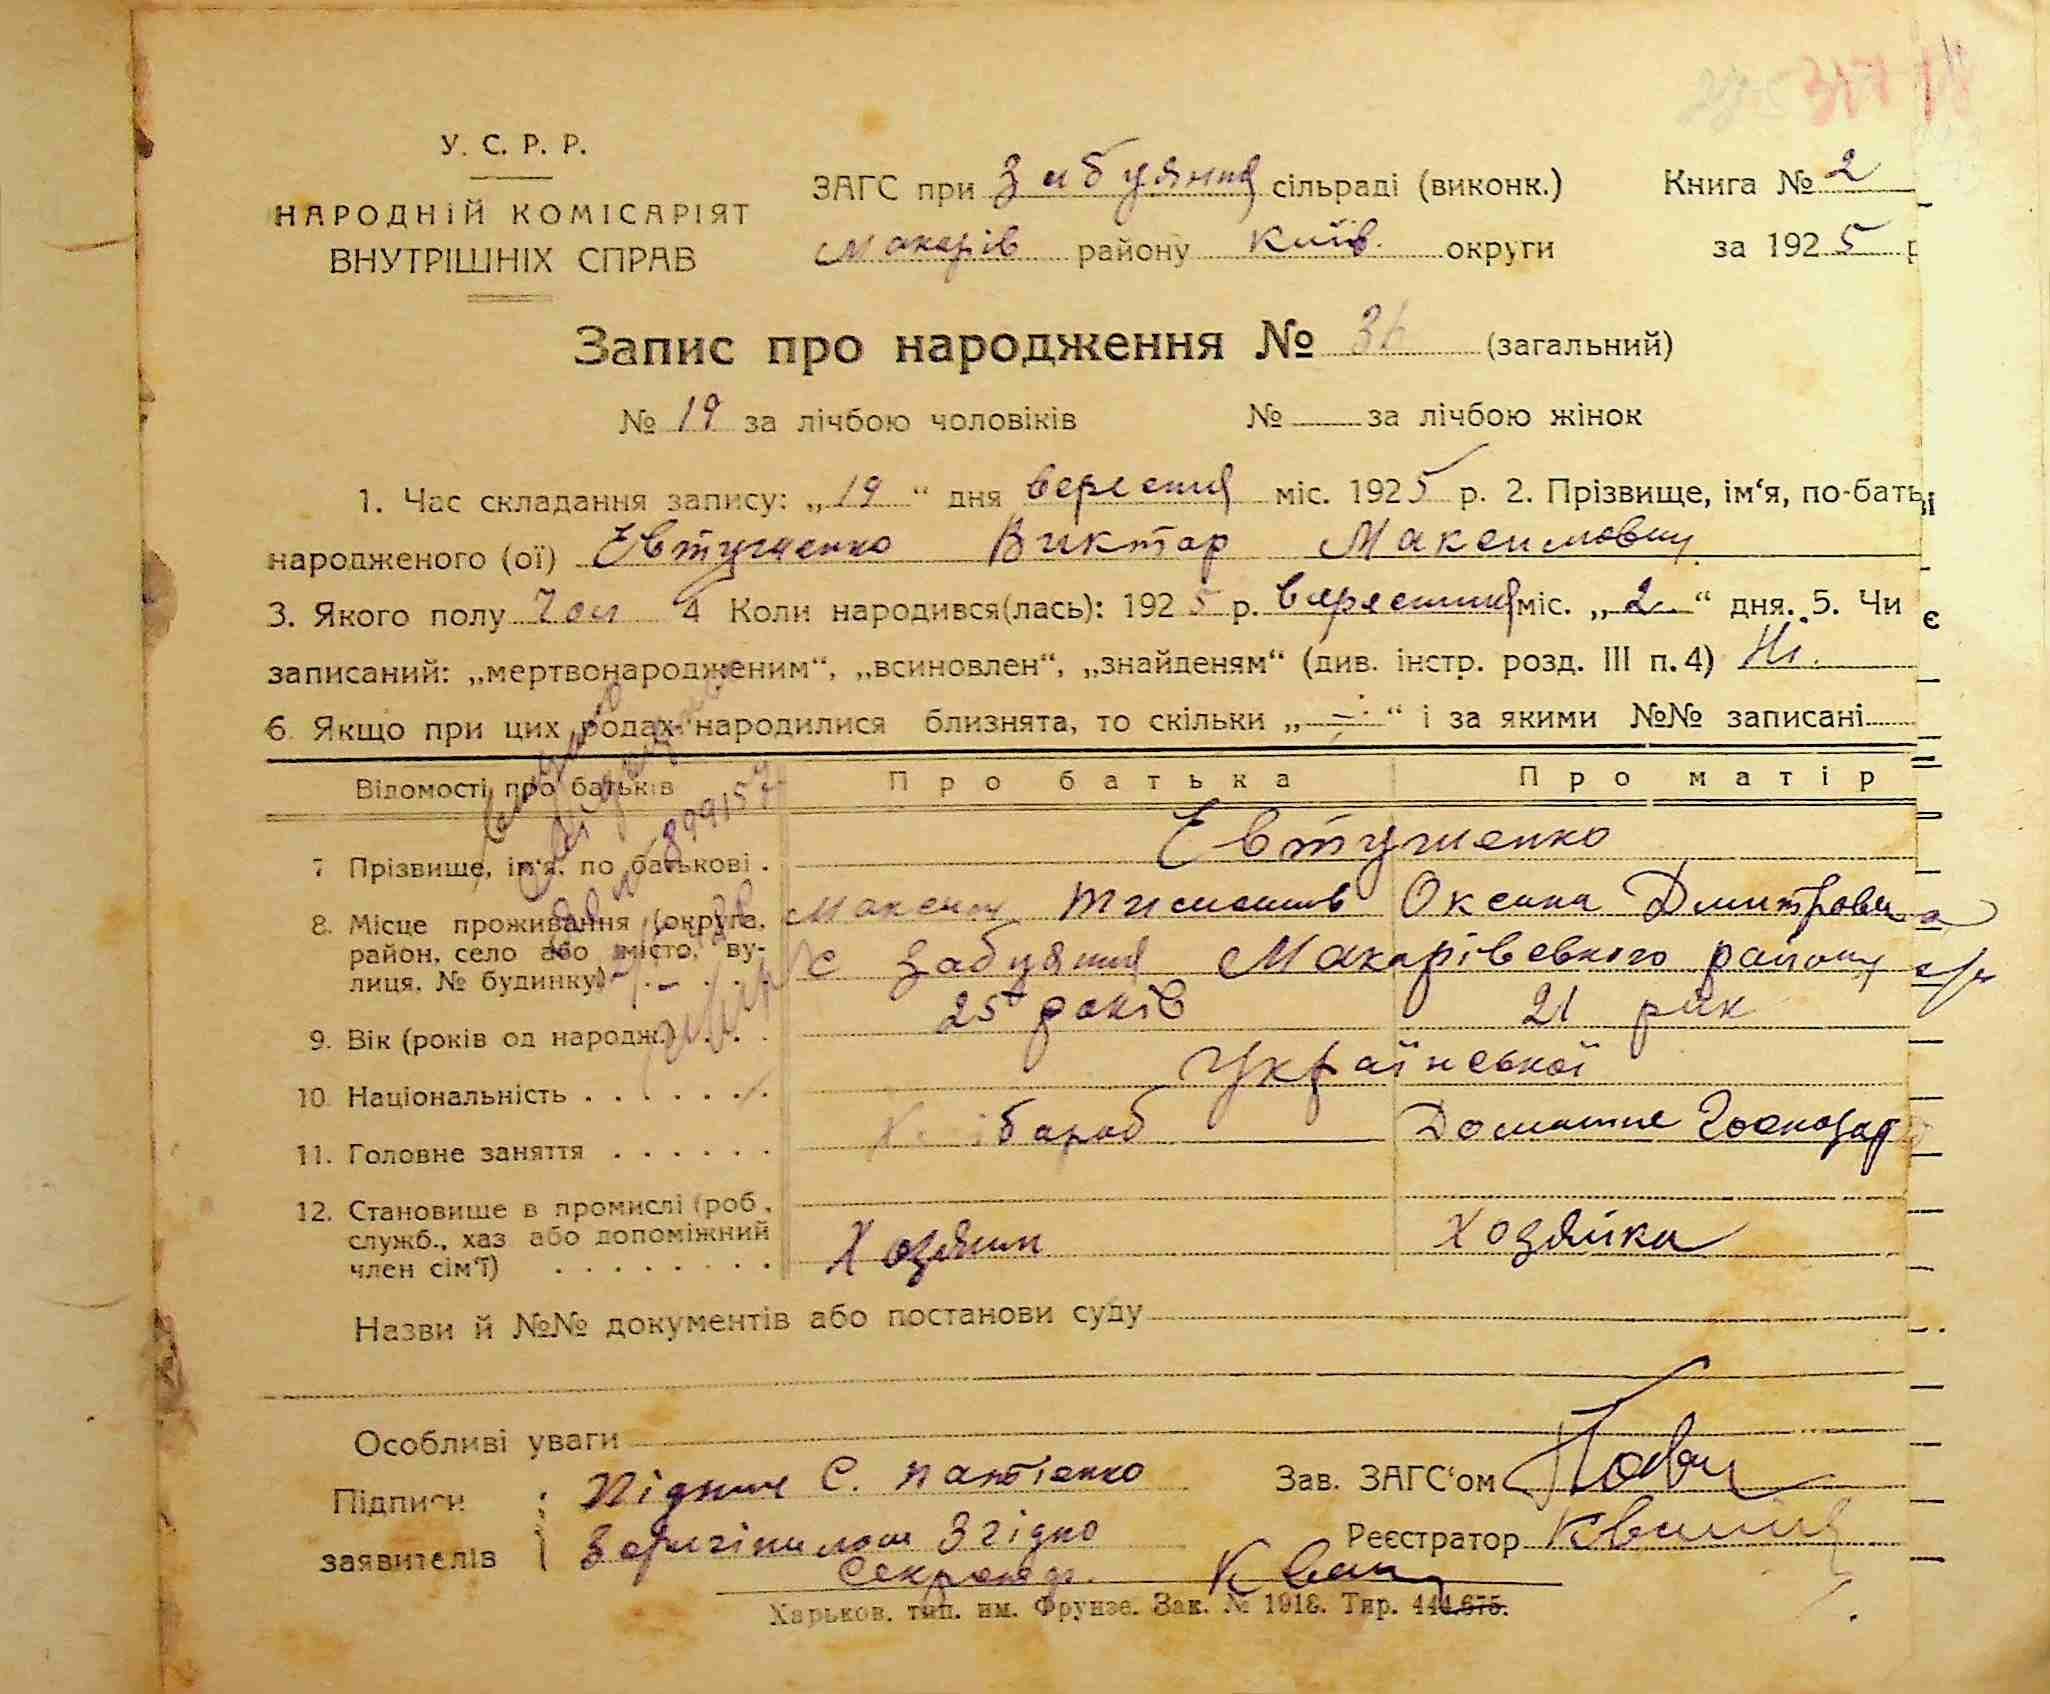 У. С. Р. Р.
НАРОДНІЙ КОМІСАРІЯТ
ВНУТРІШНІХ СПРАВ
ЗАГС при Забуяння сільраді (виконк.) Книга № 2
Макарів району Київ. округи за 1925 р
Запис про народження № (загальний)
№ 19 за лічбою чоловіків № за лічбою жінок
1. Час складання запису: „19“ дня вересння міс. 1925 р. 2. Прізвище, ім‘я, по-бать
народженого (ої) Евтушенко Виктор Максимович
3. Якого полу Чол 4 Коли народився(лась): 1925 р. вересння міс. „2“ дня. 5. Чи є
записаний: „мертвонародженим“, „всиновлен“, „знайденям“ (див. інстр. розд. III п. 4) Ні.
6. Якщо при цих родах народилися близнята, то скільки „—“ і за якими №№ записані
Відомості про батьків Про батька Про матір
7 Прізвище, ім‘я, по батькові . Евтушенко
Максим Тимошів Оксана Дмитровна
8. Місце проживання (округа,
район, село або місто, ву-
лиця, № будинку)
с Забуяння Макарівського району
9. Вік (років од народж.) 25 років 21 рик
10. Національність Української
11. Головне заняття Домашне Господар
12. Становище в промислі (роб.,
служб., хаз або допоміжний
член сім‘ї)
Хозяин Хозяйка
899157
Назви й №№ документів або постанови суду
Особливі уваги
Підписи
заявителів
Підпис С.
З оригіналом Згідно
Секретар.
Зав. ЗАГС‘ом
Реєстратор
Харьков. тип. им. Фрунзе. Зак. № 1918. Тир. 444.675.